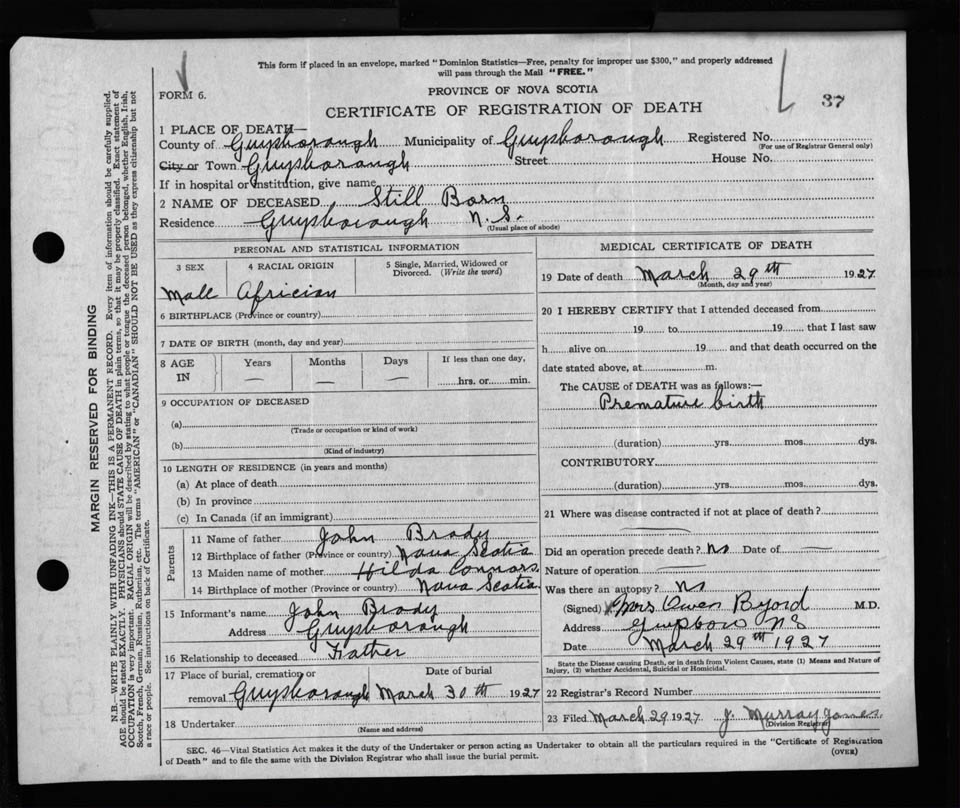 This form if placed in an envelope, marked "Dominion Statistics—Free, penalty for improper use $300," and properly addressed
will pass through the Mail "FREE."
FORM 6.
PROVINCE OF NOVA SCOTIA
37
CERTIFICATE OF REGISTRATION OF DEATH
1 PLACE OF DEATH—
County of Guysborough Municipality of Guysborough Registered No.
(For use of Registrar General only)
City or Town Guysborough Street House No.
If in hospital or institution, give name
2 NAME OF DECEASED Still Born
Residence Guysborough N.S.
(Usual place of abode)
PERSONAL AND STATISTICAL INFORMATION
3 SEX 4 RACIAL ORIGIN 5 Single, Married, Widowed or
Divorced. (Write the word)
Male Africian
6 BIRTHPLACE (Province or country)
7 DATE OF BIRTH (month, day and year)
8 AGE IN Years Months Days If less than one day,
— — — hrs. or min.
9 OCCUPATION OF DECEASED
(a)
(Trade or occupation or kind of work)
(b)
(Kind of industry)
10 LENGTH OF RESIDENCE (in years and months)
(a) At place of death
(b) In province
(c) In Canada (if an immigrant)
Parents
11 Name of father John Brody
12 Birthplace of father (Province or country) Nova Scotia
13 Maiden name of mother Hilda Connors
14 Birthplace of mother (Province or country) Nova Scotia
15 Informant's name John Brody
Address Guysborough
16 Relationship to deceased Father
17 Place of burial, cremation or Date of burial
removal Guysborough March 30th 1927
18 Undertaker
(Name and address)
MEDICAL CERTIFICATE OF DEATH
19 Date of death March 29th 1927
(Month, day and year)
20 I HEREBY CERTIFY that I attended deceased from
19 to 19 that I last saw
h alive on 19 and that death occurred on the
date stated above, at m.
The CAUSE of DEATH was as follows:—
Premature birth
(duration) yrs. mos. dys.
CONTRIBUTORY
(duration) yrs. mos. dys.
21 Where was disease contracted if not at place of death?
Did an operation precede death? no Date of —
Nature of operation —
Was there an autopsy? No
(Signed) Mrs Owen M.D.
Address N S
Date March 29th 1927
State the Disease causing Death, or in death from Violent Causes, state (1) Means and Nature of
Injury, (2) whether Accidental, Suicidal or Homicidal.
22 Registrar's Record Number
23 Filed March 29 1927 J. Murray
(Division Registrar)
SEC. 46—Vital Statistics Act makes it the duty of the Undertaker or person acting as Undertaker to obtain all the particulars required in the "Certificate of Registration
of Death" and to file the same with the Division Registrar who shall issue the burial permit. (OVER)
MARGIN RESERVED FOR BINDING
N.B.—WRITE PLAINLY WITH UNFADING INK—THIS IS A PERMANENT RECORD. Every item of information should be carefully supplied.
AGE should be stated EXACTLY. PHYSICIANS should STATE CAUSE OF DEATH in plain terms, so that it may be properly classified. Exact statement of
OCCUPATION is very important. RACIAL ORIGIN will be described by stating to what people or tongue the deceased person belonged, whether English, Irish,
Scotch, French, German, Russian, Ruthenian, etc. The terms "AMERICAN" or "CANADIAN" SHOULD NOT BE USED as they express citizenship but not
a race or people. See instructions on back of Certificate.